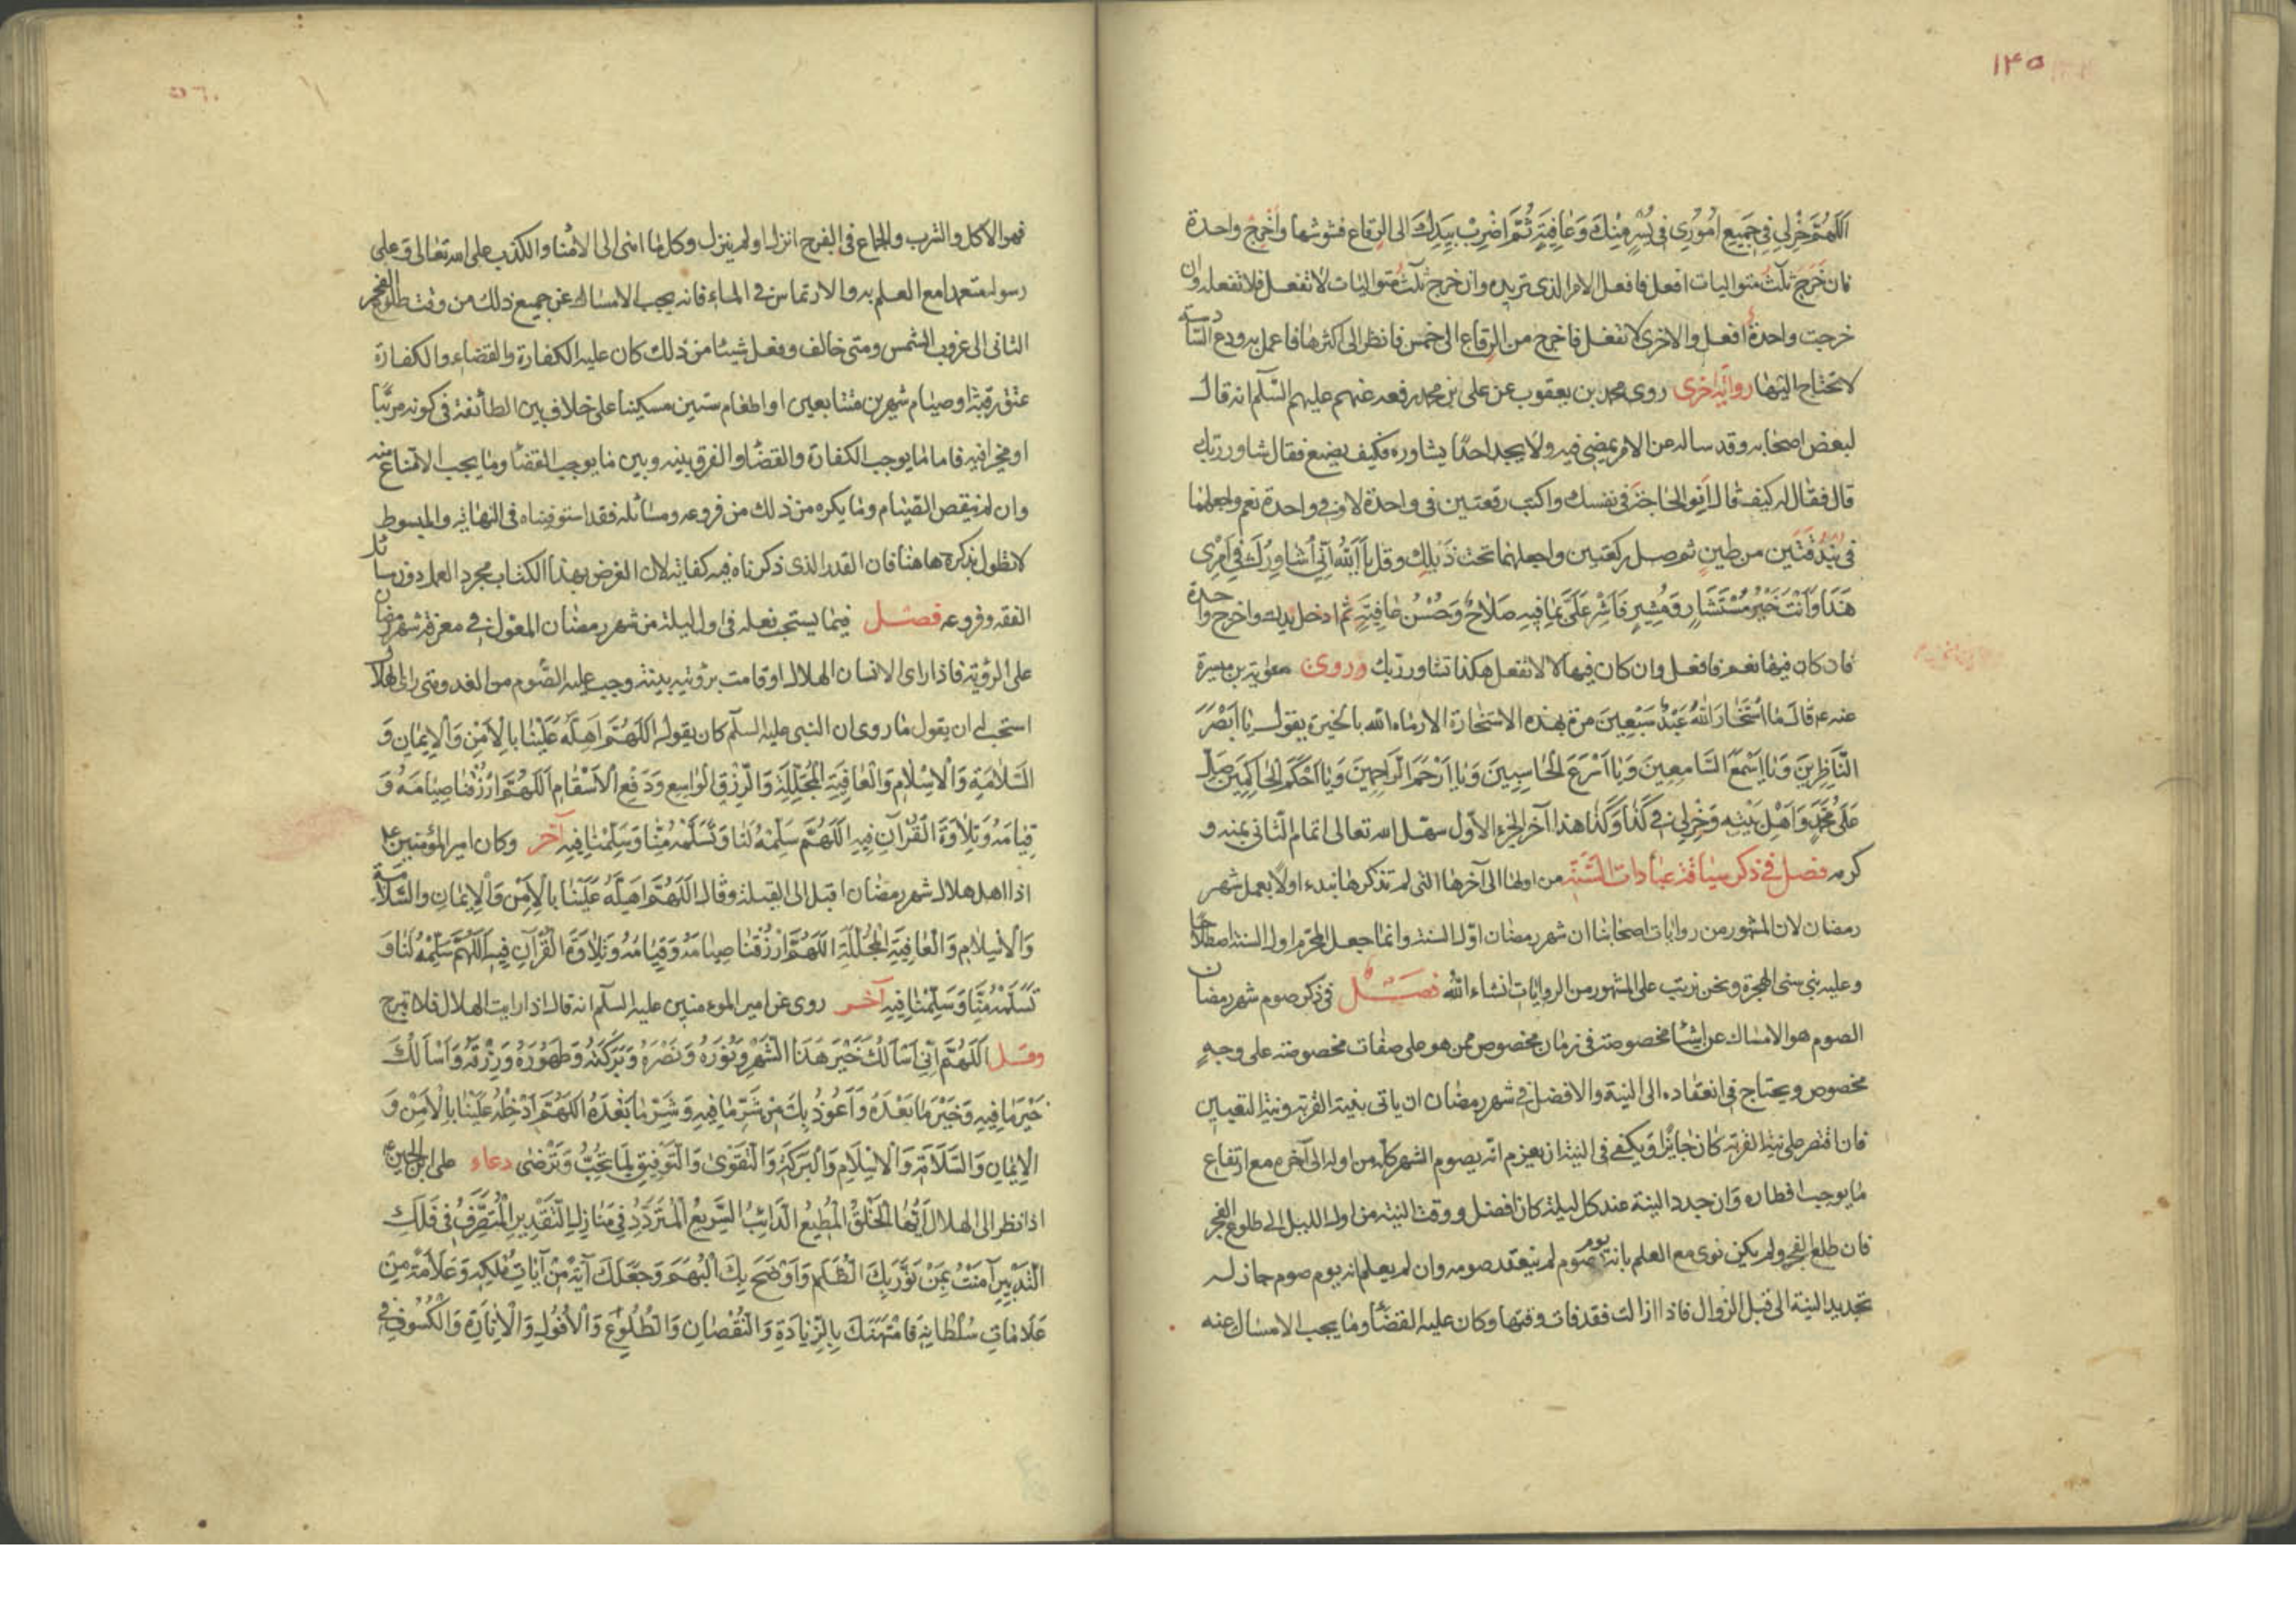 ١٣٥
اَللّهُمَّ خِرْلِي فِي جَمِيعِ اُمُورِي فِي يُسْرٍ مِنْكَ وَعَافِيَةٍ ثُمَّ اضْرِبْ بِيَدِكَ الى الرقاع فشوشها وأخرج واحدة
فان خرج ثلث متواليات افعل فافعل الامر الذى تريده وان خرج ثلث متواليات لا تفعل فلا تفعله وان
خرجت واحدة افعل والاخرى لا تفعل فاخرج من الرقاع الى خمس فانظر الى اكثرها فاعمل به ودع السادسة
لا تحتاج اليها رواية اخرى روى محمد بن يعقوب عن على بن محمد رفعه عنهم عليهم السّلم انه قال
لبعض اصحابه وقد ساله عن الامر يمضى فيه ولا يجد احدًا يشاوره فكيف يصنع فقال شاور ربّك
قال فقال له كيف قال اَنوِ الحاجة فى نفسك واكتب رقعتين فى واحدة لا وفى واحدة نعم واجعلهما
فى بُنْدُقَتَين من طينٍ ثم صل ركعتين واجعلهما تحت ذيلك وقل يَا اَللّٰهُ اِنّي اُشَاوِرُكَ فِي اَمْرِى
هَذَا وَاَنْتَ خَيْرُ مُسْتَشَارٍ وَمُشِيرٍ فَاَشِرْ عَلَىَّ بِمَا فِيهِ صَلَاحٌ وَحُسْنُ عَافِيَةٍ ثم ادخل يدك واخرج واحدة
فان كان فيها نعم فافعل وان كان فيها لا لا تفعل هكذا تشاور ربّك وروى معوية بن ميسرة
عنه ع قال ما اسْتَخَارَ اللّٰهَ عَبْدٌ سَبْعِينَ مرة بهذه الاستخارة الا رماه الله بالخيرة يقول يا اَبْصَرَ
النَّاظِرِينَ وَيَا اَسْمَعَ السَّامِعِينَ وَيَا اَسْرَعَ الْحَاسِبِينَ وَيَا اَرْحَمَ الرَّاحِمِينَ وَيَا اَحْكَمَ الْحَاكِمِينَ صَلِّ
عَلَى مُحَمَّدٍ وَاَهْلِ بَيْتِهِ وَخِرْلِي فِي كَذَا وَكَذَا هذا آخر الجزء الاوّل سهّل الله تعالى اتمام الثّانى بمنه و
كرمه فصل فى ذكر سياقة عبادات السَّنَة من اولها الى آخرها التى لم تذكرها نبدء اولا بعمل شهر
رمضان لان المشهور من روايات اصحابنا ان شهر رمضان اوّل السنة وانما جعل المحرّم اول السنة اصطلاحًا
وعليه بنى سنى الهجرة ونحن نرتب على المشهور من الروايات انشاء الله فصل فى ذكر صوم شهر رمضان
الصوم هو الامساك عن اشيا مخصوصة فى زمان مخصوص ممن هو على صفات مخصوصة على وجهٍ
مخصوص ويحتاج فى انعقاده الى النية والافضل فى شهر رمضان ان ياتى بنية القربة ونية التعيين
فان اقتصر على نية القربة كان جايزًا ويكفى فى النية ان يعزم انّه يصوم الشهر كله من اوله الى آخره مع ارتفاع
ما يوجب افطاره وان جدد النية عند كل ليلة كان افضل ووقت النية من اول الليل الى طلوع الفجر
فان طلع الفجر ولم يكن نوى مع العلم بانه يوم صوم لم ينعقد صومه وان لم يعلم انه يوم صوم جاز له
تجديد النية الى قبل الزوال فاذا زالت فقد فات وقتها وكان عليه القضأ وما يجب الامساك عنه
٥٦٠
فهو الاكل والشرب والجماع فى الفرج انزل او لم ينزل وكل ما ادى الى الامنا والكذب على الله تعالى وعلى
رسوله متعمدا مع العلم به والارتماس فى الماء فانه يجب الامساك عن جميع ذلك من وقت طلوع الفجر
الثانى الى غروب الشمس ومتى خالف وفعل شيئا من ذلك كان عليه الكفارة والقضاء والكفارة
عتق رقبة او صيام شهرين متتابعين او اطعام ستين مسكينا على خلاف بين الطائفة فى كونه مرتّبا
او مخيرا فيه فاما ما يوجب الكفارة والقضأ والفرق بينه وبين ما يوجب القضأ وما يجب الامتناع منه
وان لم ينقص الصّيام وما يكره من ذلك من فروعه ومسائله فقد استوفيناه فى النهاية والمبسوط
لا نطول بذكره هاهنا فان القدر الذى ذكرناه فيه كفاية لان الغرض بهذا الكتاب مجرد العمل دون مسائل
الفقه وفروعه فصل فيما يستحب فعله فى اول ليلة من شهر رمضان المعول فى معرفة شهر رمضان
على الرؤية فاذا راى الانسان الهلال او قامت برؤيته بينة وجب عليه الصّوم من الغد ومتى راى الهلال
استحب له ان يقول ما روى ان النبى عليه السلم كان يقوله اَللّهُمَّ اَهِلَّهُ عَلَيْنَا بِالْاَمْنِ وَالْاِيْمَانِ وَ
السَّلَامَةِ وَالْاِسْلَامِ وَالْعَافِيَةِ الْمُجَلِّلَةِ وَالرِّزْقِ الْوَاسِعِ وَدَفْعِ الْاَسْقَامِ اَللّهُمَّ ارْزُقْنَا صِيَامَهُ وَ
قِيَامَهُ وَتِلَاوَةَ الْقُرْآنِ فِيهِ اَللّهُمَّ سَلِّمْهُ لَنَا وَتَسَلَّمْهُ مِنَّا وَسَلِّمْنَا فِيهِ آخر وكان امير المؤمنين ع
اذا اهل هلال شهر رمضان اقبل الى القبلة وقال اَللّهُمَّ اَهِلَّهُ عَلَيْنَا بِالْاَمْنِ وَالْاِيمَانِ وَالسَّلَامَةِ
وَالْاِسْلَامِ وَالْعَافِيَةِ الْمُجَلِّلَةِ اَللّهُمَّ ارْزُقْنَا صِيَامَهُ وَقِيَامَهُ وَتِلَاوَةَ الْقُرْآنِ فِيهِ اَللّهُمَّ سَلِّمْهُ لَنَا وَ
تَسَلَّمْهُ مِنَّا وَسَلِّمْنَا فِيهِ آخر روى عن امير المومنين عليه السلم انه قال اذا رايت الهلال فلا تبرح
وقل اَللّهُمَّ اِنِّي اَسْأَلُكَ خَيْرَ هَذَا الشَّهْرِ وَنُورَهُ وَنَصْرَهُ وَبَرَكَتَهُ وَطَهُورَهُ وَرِزْقَهُ وَاَسْأَلُكَ
خَيْرَ مَا فِيهِ وَخَيْرَ مَا بَعْدَهُ وَاَعُوذُ بِكَ مِنْ شَرِّ مَا فِيهِ وَشَرِّ مَا بَعْدَهُ اَللّهُمَّ اَدْخِلْهُ عَلَيْنَا بِالْاَمْنِ وَ
الْاِيمَانِ وَالسَّلَامَةِ وَالْاِسْلَامِ وَالْبَرَكَةِ وَالتَّقْوَىٰ وَالتَّوْفِيقِ لِمَا تُحِبُّ وَتَرْضَى دعاء على بن الحسين ع
اذا نظر الى الهلال اَيُّهَا الْخَلْقُ الْمُطِيعُ الدَّائِبُ السَّرِيعُ الْمُتَرَدِّدُ فِي مَنَازِلِ التَّقْدِيرِ الْمُتَصَرِّفُ فِي فَلَكِ
التَّدْبِيرِ آمَنْتُ بِمَنْ نَوَّرَ بِكَ الظُّلَمَ وَاَوْضَحَ بِكَ الْبُهَمَ وَجَعَلَكَ آيَةً مِنْ آيَاتِ مُلْكِهِ وَعَلَامَةً مِنْ
عَلَامَاتِ سُلْطَانِهِ فَامْتَهَنَكَ بِالزِّيَادَةِ وَالنُّقْصَانِ وَالطُّلُوعِ وَالْاُفُولِ وَالْاِنَارَةِ وَالْكُسُوفِ فِي